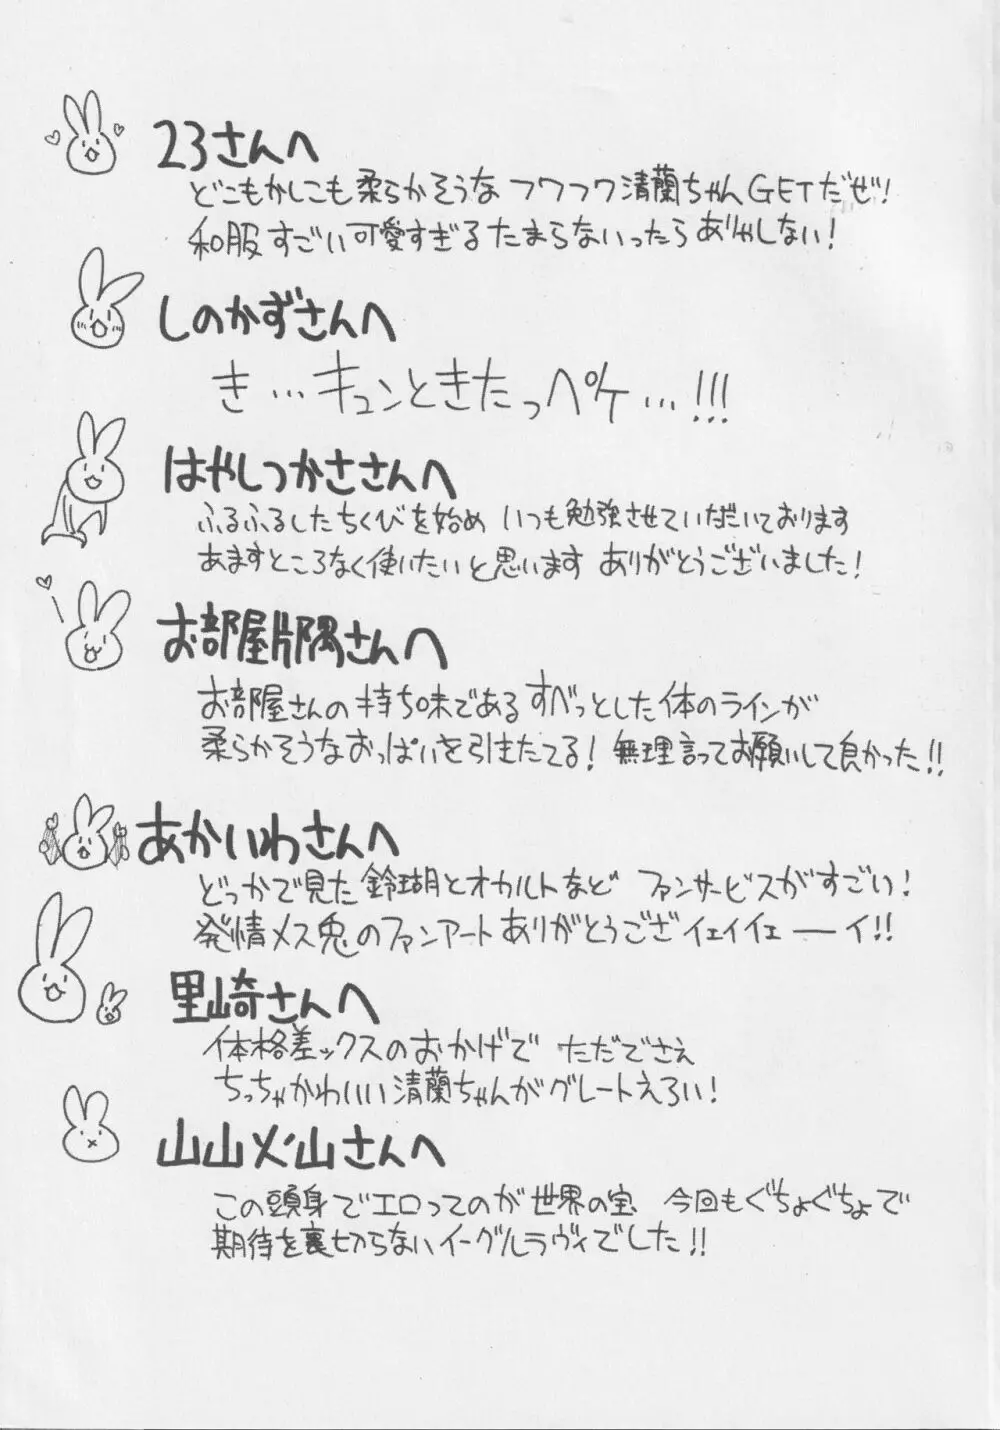 23さんへ
どこもかしこも柔らかそうな フワフワ清蘭ちゃんGETだぜ!
和服すごい可愛すぎるたまらないったらありゃしない!
しのかずさんへ
き…キュンときたっペケ…!!!
はやしつかささんへ
ふるふるしたちくびを始め いつも勉強させていただいております
あますところなく使いたいと思います ありがとうございました!
お部屋片隅さんへ
お部屋さんの持ち味であるすべっとした体のラインが
柔らかそうなおっぱいを引きたてる! 無理言ってお願いして良かった!!
あかいわさんへ
どっかで見た鈴瑚とオカルトなど ファンサービスがすごい!
発情メス兎のファンアートありがとうござイェイイェーーイ!!
里崎さんへ
体格差ックスのおかげで ただでさえ
ちっちゃかわいい清蘭ちゃんがグレートえろい!
山山火山さんへ
この頭身でエロってのが世界の宝 今回もぐちょぐちょで
期待を裏切らないイーグルラヴィでした!!